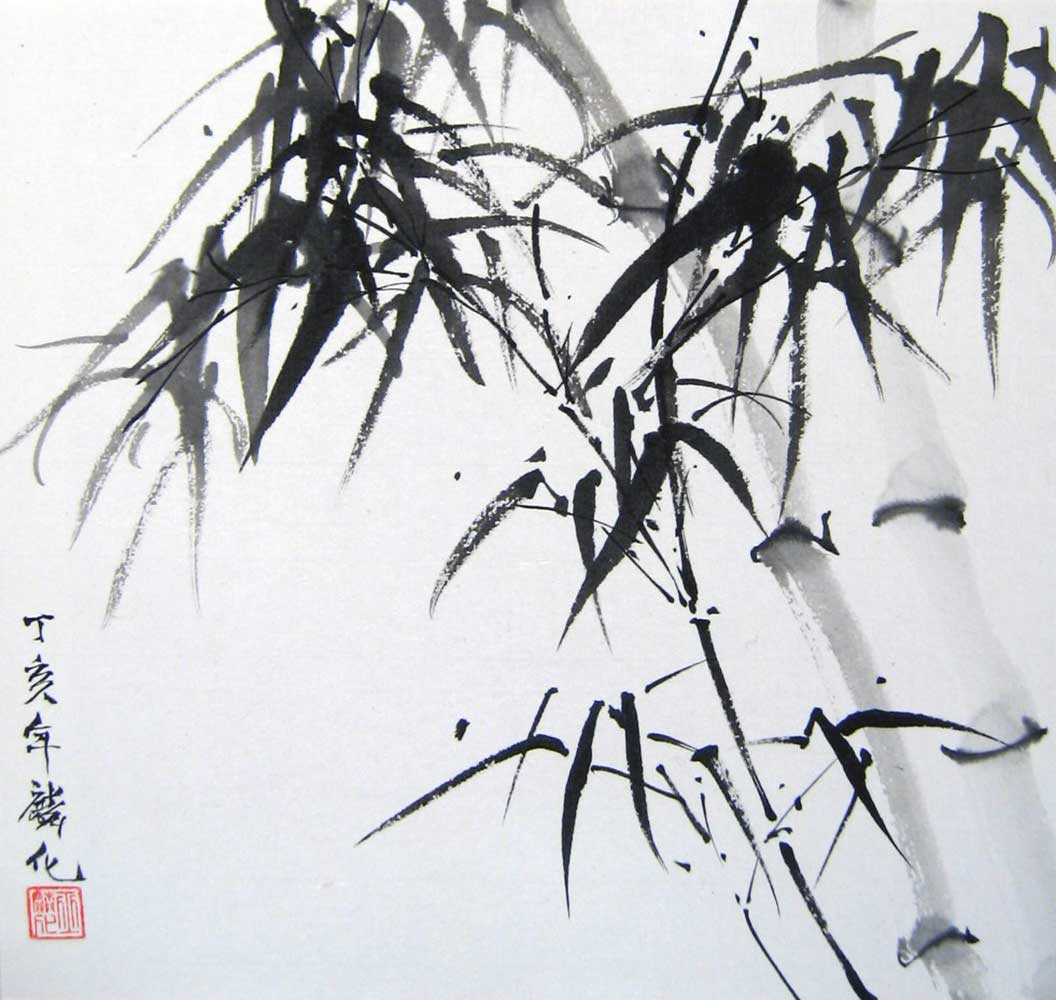 丁亥年麟化